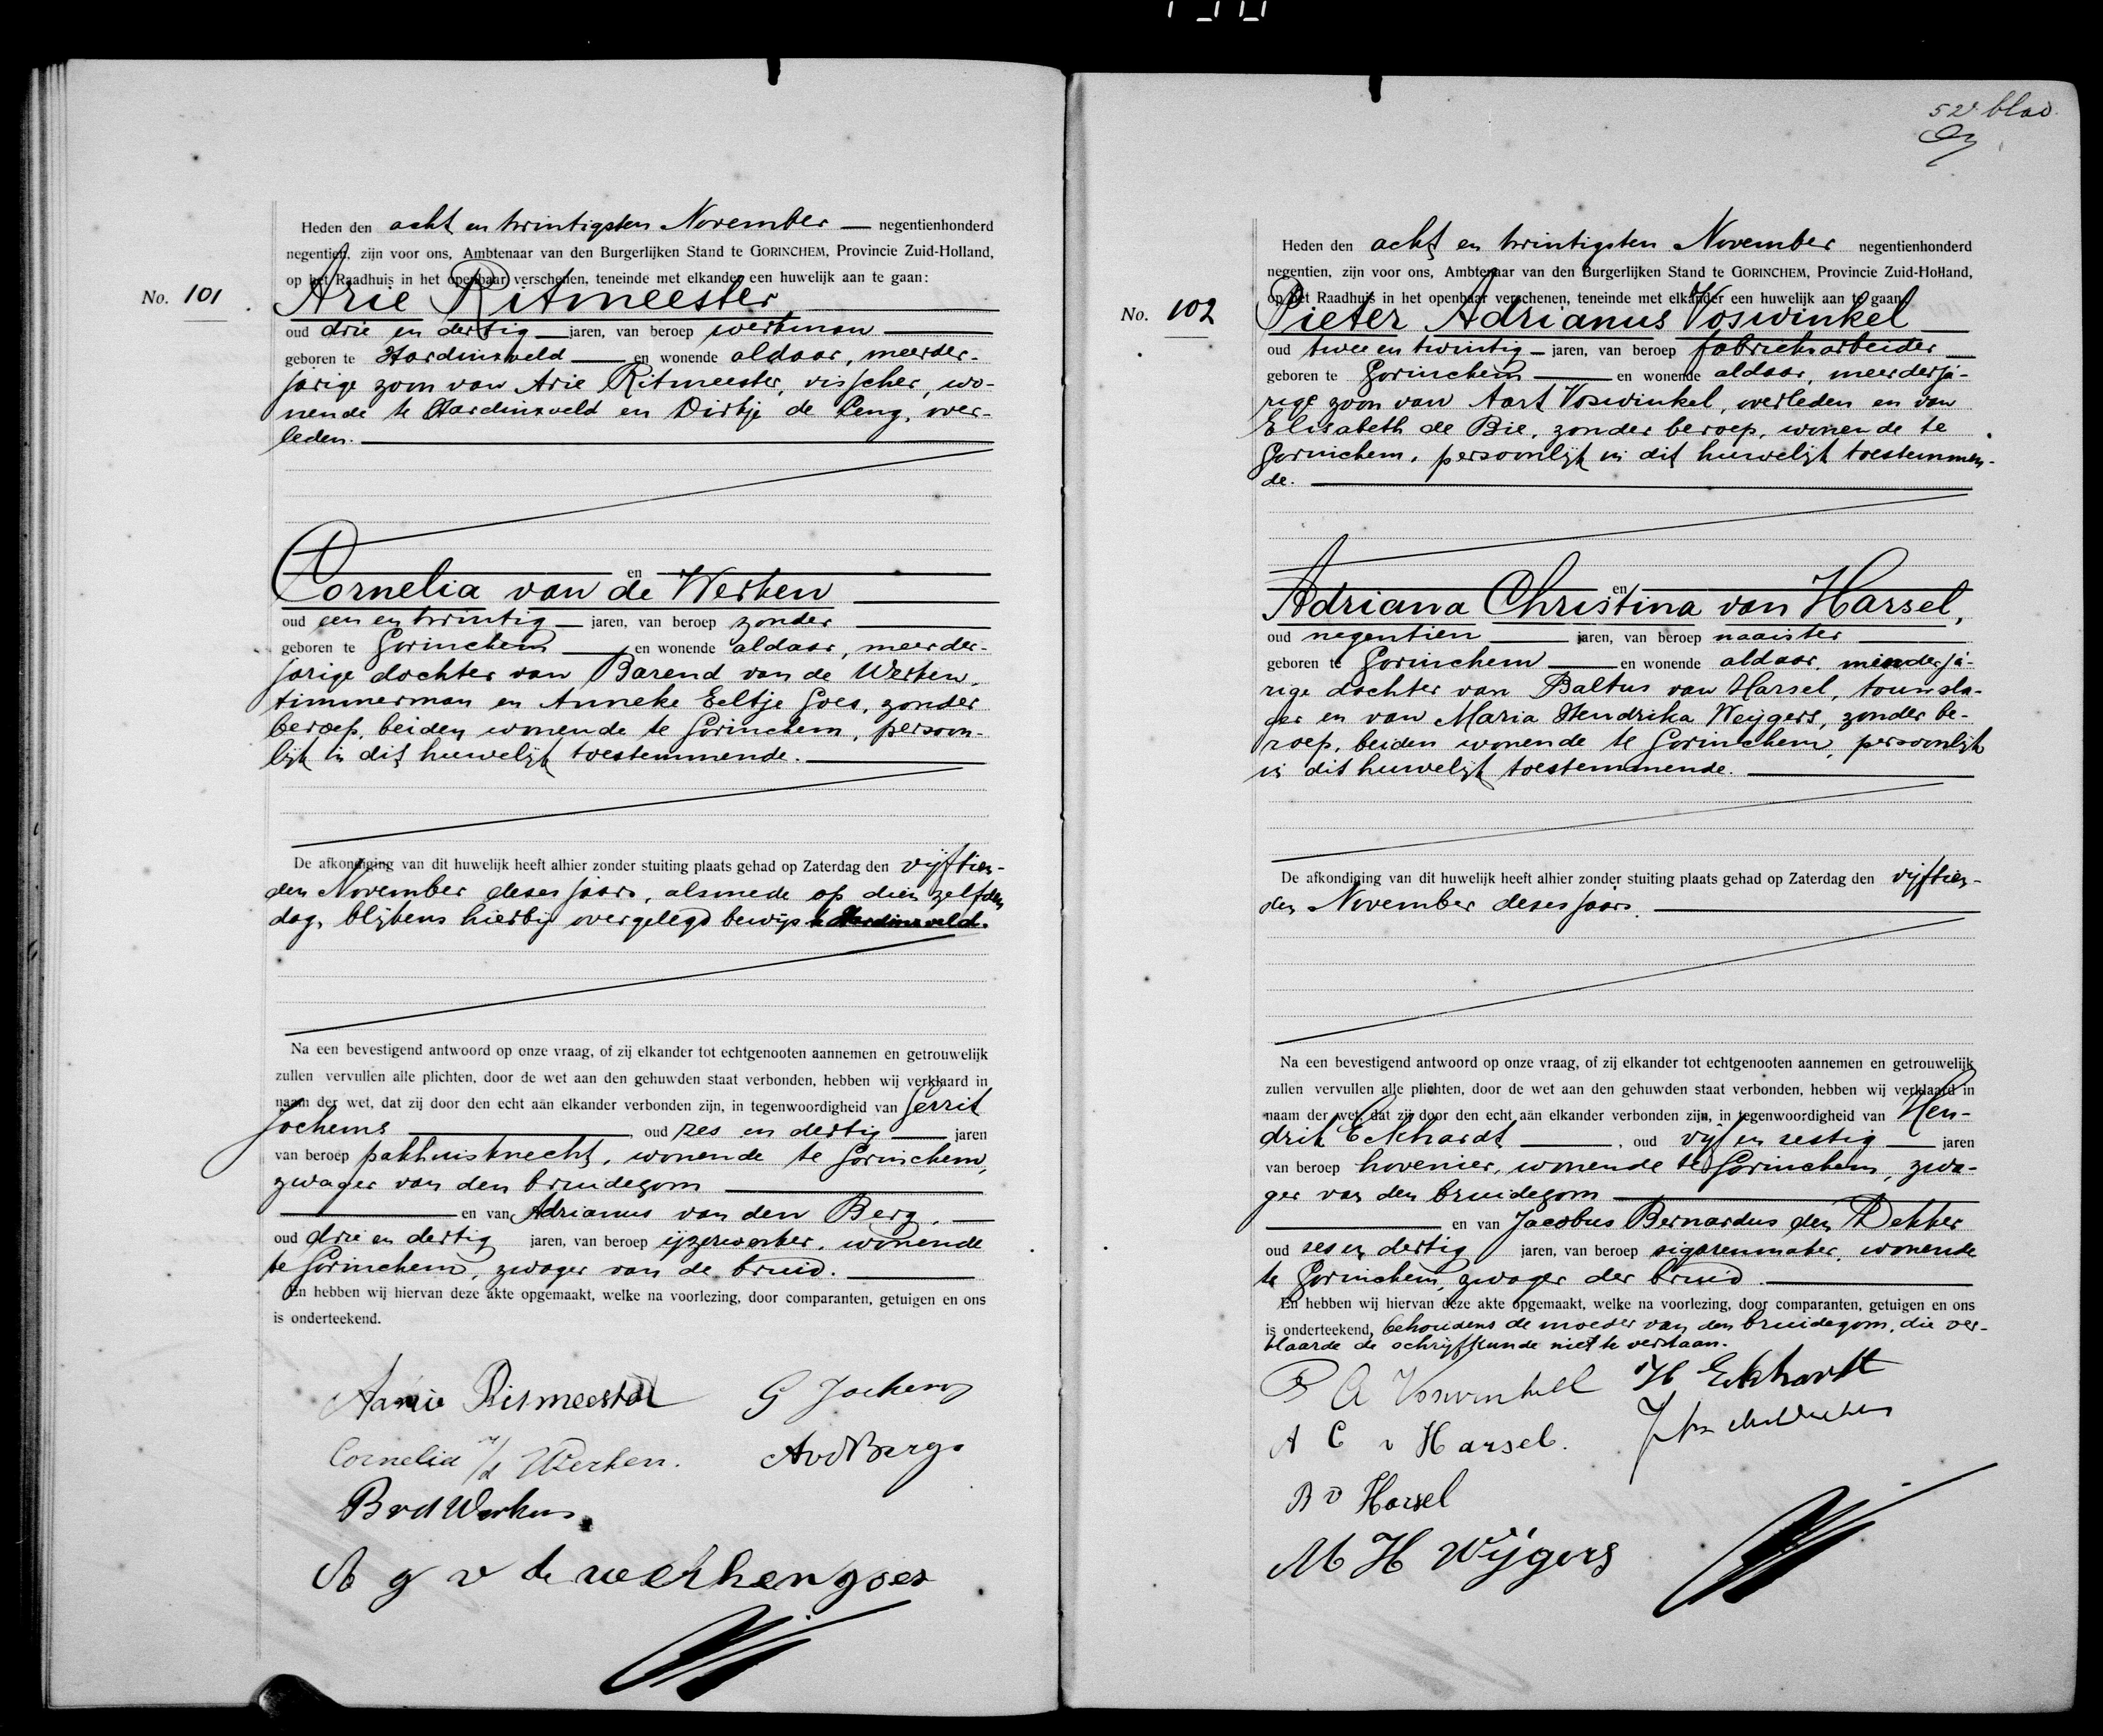 Heden den acht en twintigsten November negentienhonderd
negentien, zijn voor ons, Ambtenaar van den Burgerlijken Stand te GORINCHEM, Provincie Zuid-Holland,
op het Raadhuis in het openbaar verschenen, teneinde met elkander een huwelijk aan te gaan:
No. 101 Arie Ritmeester
oud drie en dertig jaren, van beroep werkman
geboren te Hardinxveld en wonende aldaar, meerder-
jarige zoon van Arie Ritmeester, visscher, wo-
nende te Hardinxveld en Dirkje de Leng, over-
leden.
en
Cornelia van de Werken
oud een en twintig jaren, van beroep zonder
geboren te Gorinchem en wonende aldaar, meerder-
jarige dochter van Barend van de Werken,
timmerman en Anneke Eeltje Goes, zonder
beroep, beiden wonende te Gorinchem, persoon-
lijk in dit huwelijk toestemmende.
De afkondiging van dit huwelijk heeft alhier zonder stuiting plaats gehad op Zaterdag den vijftien-
den November dezes jaars, alsmede op dien zelfden
dag, blijkens hierbij overgelegd bewijs te Hardinxveld.
Na een bevestigend antwoord op onze vraag, of zij elkander tot echtgenooten aannemen en getrouwelijk
zullen vervullen alle plichten, door de wet aan den gehuwden staat verbonden, hebben wij verklaard in
naam der wet, dat zij door den echt aan elkander verbonden zijn, in tegenwoordigheid van Gerrit
Jochems, oud zes en dertig jaren
van beroep pakhuisknecht, wonende te Gorinchem,
zwager van den bruidegom
en van Adrianus van den Berg,
oud drie en dertig jaren, van beroep ijzerwerker, wonende
te Gorinchem, zwager van de bruid.
En hebben wij hiervan deze akte opgemaakt, welke na voorlezing, door comparanten, getuigen en ons
is onderteekend.
Ritmeester G Jochems
Cornelia v/d Werken. AvdBerg.
BvdWerken
A g v de werken goes
52e blad
Heden den acht en twintigsten November negentienhonderd
negentien, zijn voor ons, Ambtenaar van den Burgerlijken Stand te GORINCHEM, Provincie Zuid-Holland,
op het Raadhuis in het openbaar verschenen, teneinde met elkander een huwelijk aan te gaan:
No. 102 Pieter Adrianus Voswinkel
oud twee en twintig jaren, van beroep fabrieksarbeider
geboren te Gorinchem en wonende aldaar, meerderja-
rige zoon van Aart Voswinkel, overleden en van
Elisabeth de Bie, zonder beroep, wonende te
Gorinchem, persoonlijk in dit huwelijk toestemmen-
de.
en
Adriana Christina van Harsel,
oud negentien jaren, van beroep naaister
geboren te Gorinchem en wonende aldaar, minderja-
rige dochter van Baltus van Harsel, touwsla-
ger en van Maria Hendrika Weijgers, zonder be-
roep, beiden wonende te Gorinchem, persoonlijk
in dit huwelijk toestemmende.
De afkondiging van dit huwelijk heeft alhier zonder stuiting plaats gehad op Zaterdag den vijftien-
den November dezes jaars.
Na een bevestigend antwoord op onze vraag, of zij elkander tot echtgenooten aannemen en getrouwelijk
zullen vervullen alle plichten, door de wet aan den gehuwden staat verbonden, hebben wij verklaard in
naam der wet, dat zij door den echt aan elkander verbonden zijn, in tegenwoordigheid van Hen-
drik Eckhardt, oud vijf en zestig jaren
van beroep hovenier, wonende te Gorinchem, zwa-
ger van den bruidegom
en van Jacobus Bernardus den Dekker
oud zes en dertig jaren, van beroep sigarenmaker, wonende
te Gorinchem, zwager der bruid.
En hebben wij hiervan deze akte opgemaakt, welke na voorlezing, door comparanten, getuigen en ons
is onderteekend, behoudens de moeder van den bruidegom, die ver-
klaarde de schrijfkunde niet te verstaan.
P A Voswinkel H Eckhardt
A C v Harsel.
B v Harsel
M H Wijgers